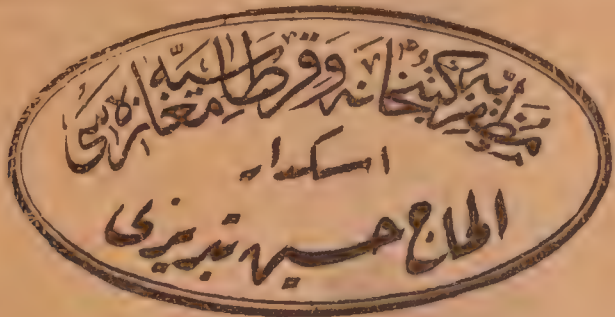 مظفريه كتبخانه و قرطاسيه مغازه سى
اسكدار
الحاج حسين تبريزى